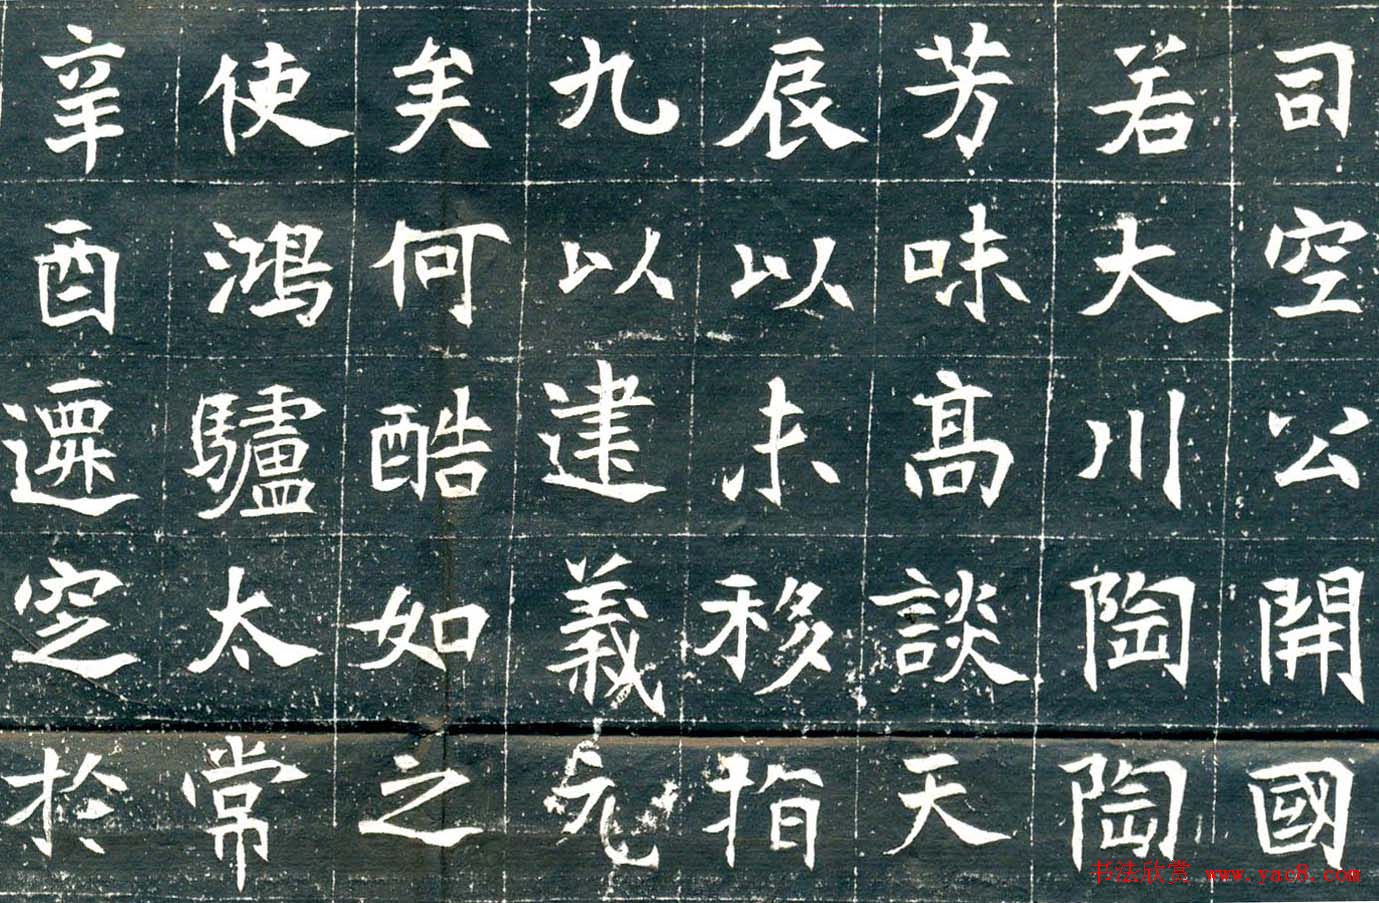 司空公開國
若大川陶陶
芳味高談天
辰以未移指
九以建義元
矣何酷如之
使鴻驢太常
辛酉遷窆於
书法欣赏 www.yac8.com